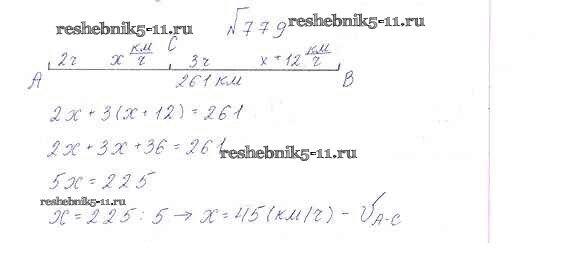 reshebnik5-11.ru
№779
C
2ч x км/ч 3ч x+12 км/ч
A 261 км B
2x+3(x+12)=261
2x+3x+36=261
reshebnik5-11.ru
5x=225
reshebnik5-11.ru
x=225:5 → x=45(км/ч) - V A-C